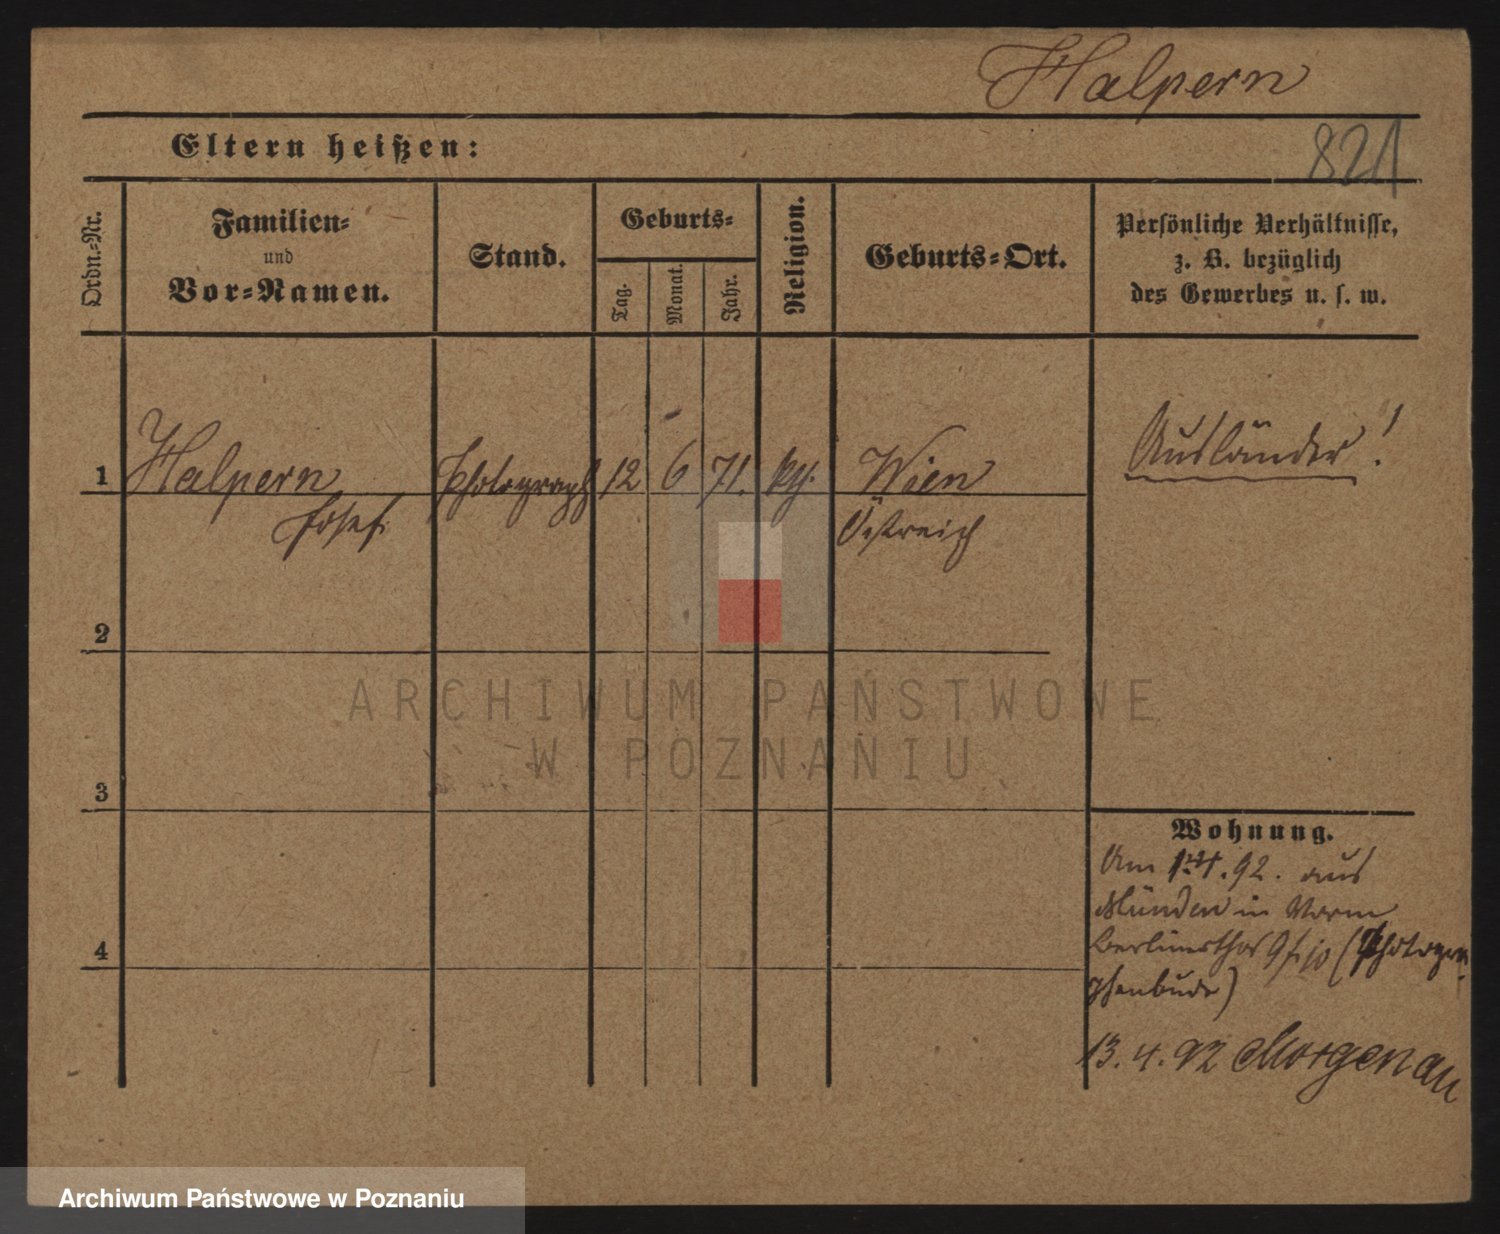 Halpern
Eltern heißen:
821
Ordn.-Nr.
Familien-
und
Vor-Namen.
Stand.
Geburts-
Tag.
Monat.
Jahr.
Religion.
Geburts-Ort.
Persönliche Verhältnisse,
z. B. bezüglich
des Gewerbes u. s. w.
1 Halpern Photograph 12 6 71. Wien
Josef
Östreich
Ausländer!
2
3
4
Wohnung.
Am 92. aus
Münden in
Berlinerthor (Photogra-
phenbude)
13. 4. 92 Morgenau
ARCHIWUM PAŃSTWOWE
W POZNANIU
Archiwum Państwowe w Poznaniu